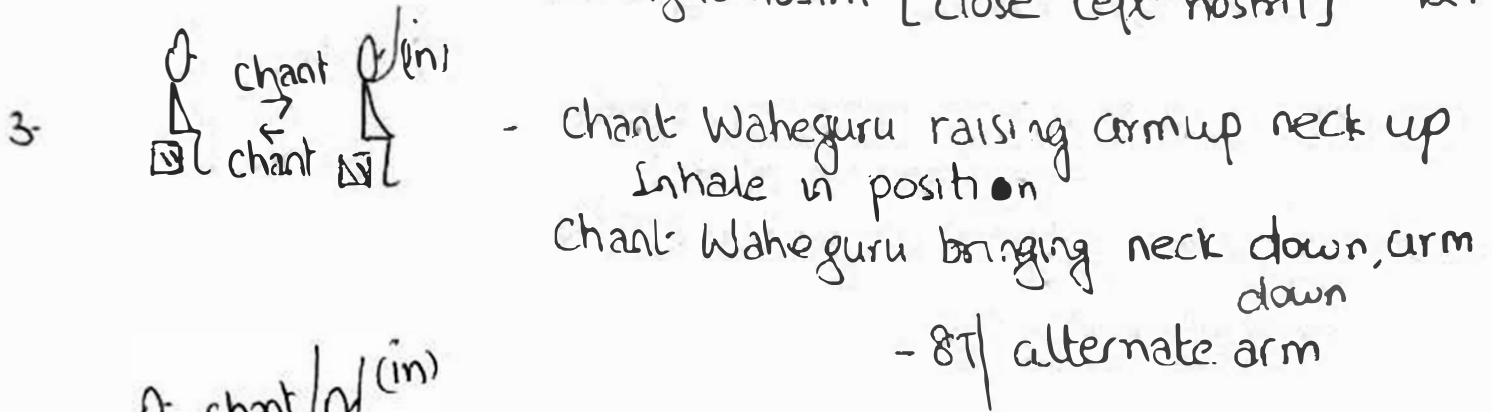 [close left nostril]
chant (in)
3-
chant
- Chant Waheguru raising arm up neck up
Inhale in position
Chant Waheguru bringing neck down, arm
down
- 8T| alternate arm
chant (in)